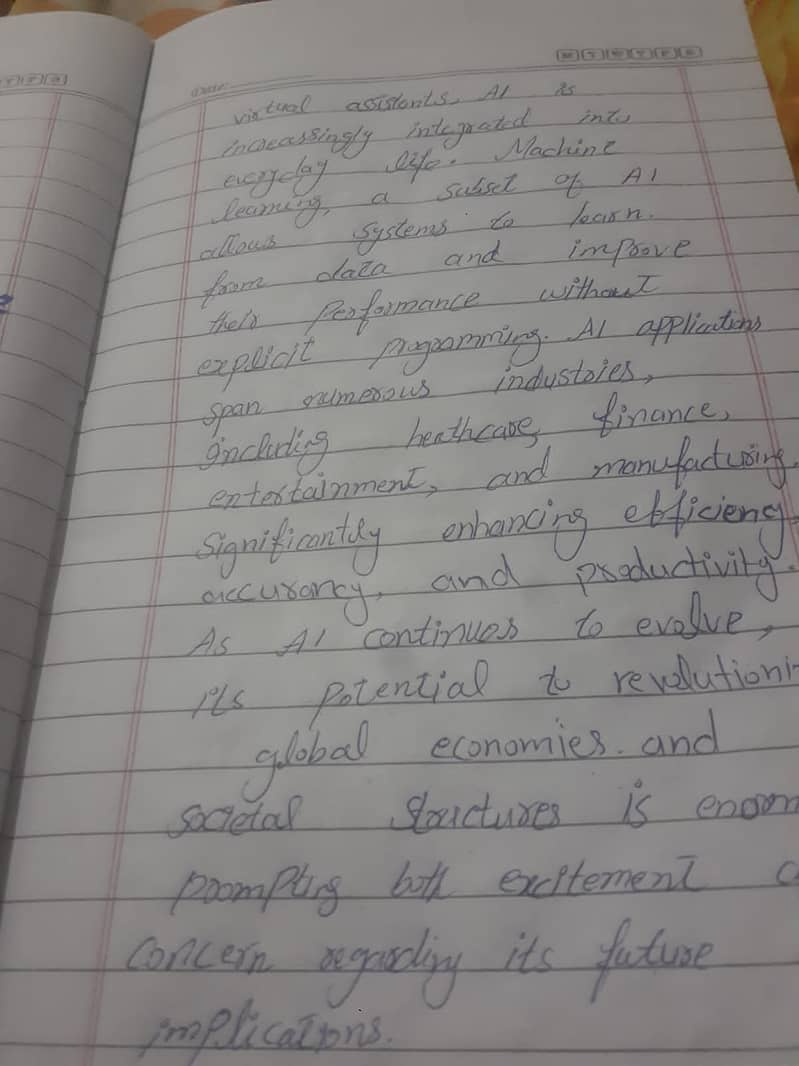 M T W T F S
Date:
virtual assistants, AI is
increassingly integrated into
everyday life. Machine
learning, a subset of AI
allous systems to learn.
from data and improve
their Performance without
explicit programming. AI applications
span numerous industries,
including heathcare, finance,
entertainment, and manufacturing,
Significantly enhancing efficiency,
accurancy, and productivity.
As AI continues to evolve,
its potential to revolutioni-
global economies. and
societal structures is enorm
prompting both excitement a
concern regarding its future
implications.